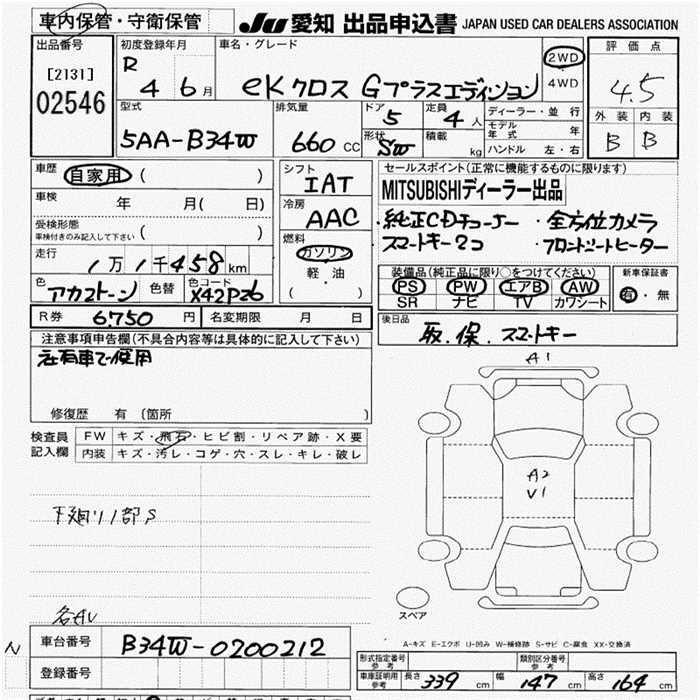 車内保管・守衛保管
JU 愛知 出品申込書 JAPAN USED CAR DEALERS ASSOCIATION
出品番号
[2131]
02546
初度登録年月
R 4 6月
車名・グレード
eKクロス Gプラスエディション
2WD
4WD
評価点
4.5
外装 内装
B B
型式
5AA-B34W
排気量
660 CC
ドア
5
形状
SW
定員
4人
積載
kg
ディーラー・並行
モデル年式 年
ハンドル 左・右
車歴
自家用 ( )
車検
年 月( 日)
受検形態
車検付きのみ記入して下さい ( )
走行
1万1千458km
色
アカ2トーン
色替
色コード
X42P26
シフト
IAT
冷房
AAC
燃料
ガソリン
軽・油
( )
セールスポイント(正常に機能するものに限ります)
MITSUBISHIディーラー出品
・純正CDチューナー ・全方位カメラ
スマートキー2コ ・フロントシートヒーター
装備品(純正品に限り○をつけてください)
PS PW エアB AW
SR ナビ TV カワシート
新車保証書
有・無
R券 6.750 円
名変期限 月 日
後日品
取.保.スマートキー
注意事項申告欄(不具合内容等は具体的に記入して下さい)
社有車で使用
修復歴 有 (箇所 )
検査員記入欄
FW キズ・飛石・ヒビ割・リペア跡・X要
内装 キズ・汚レ・コゲ・穴・スレ・キレ・破レ
A1
A2
V1
下廻リ1部S
各AV
スペア
A-キズ E-エクボ U-凹み W-補修跡 S-サビ C-腐食 XX-交換済
N
車台番号
B34W-0200212
登録番号
形式指定番号 参考
類別区分番号 参考
車庫証明用参考
長さ 339 cm 幅 147 cm 高さ 164 cm